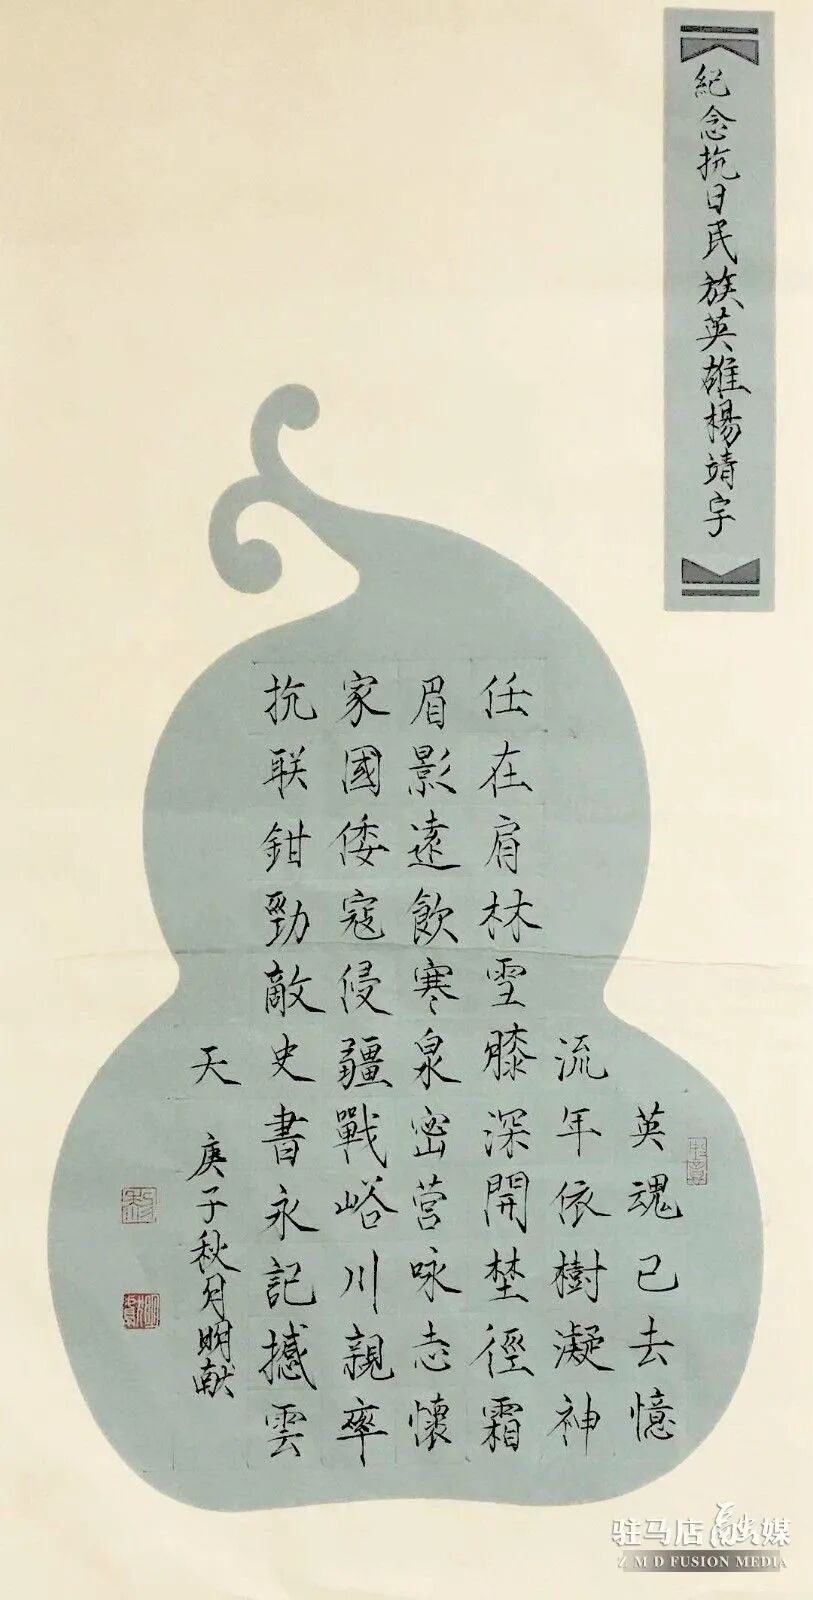 紀念抗日民族英雄楊靖宇
英魂已去憶
流年依樹凝神
任在肩林雪膝深開埜徑霜
眉影遠飲寒泉密营咏志懷
家國倭寇侵疆戰峪川親率
抗联鉗勁敵史書永記撼雲
天
庚子秋月明献
驻马店融媒
Z M D FUSION MEDIA